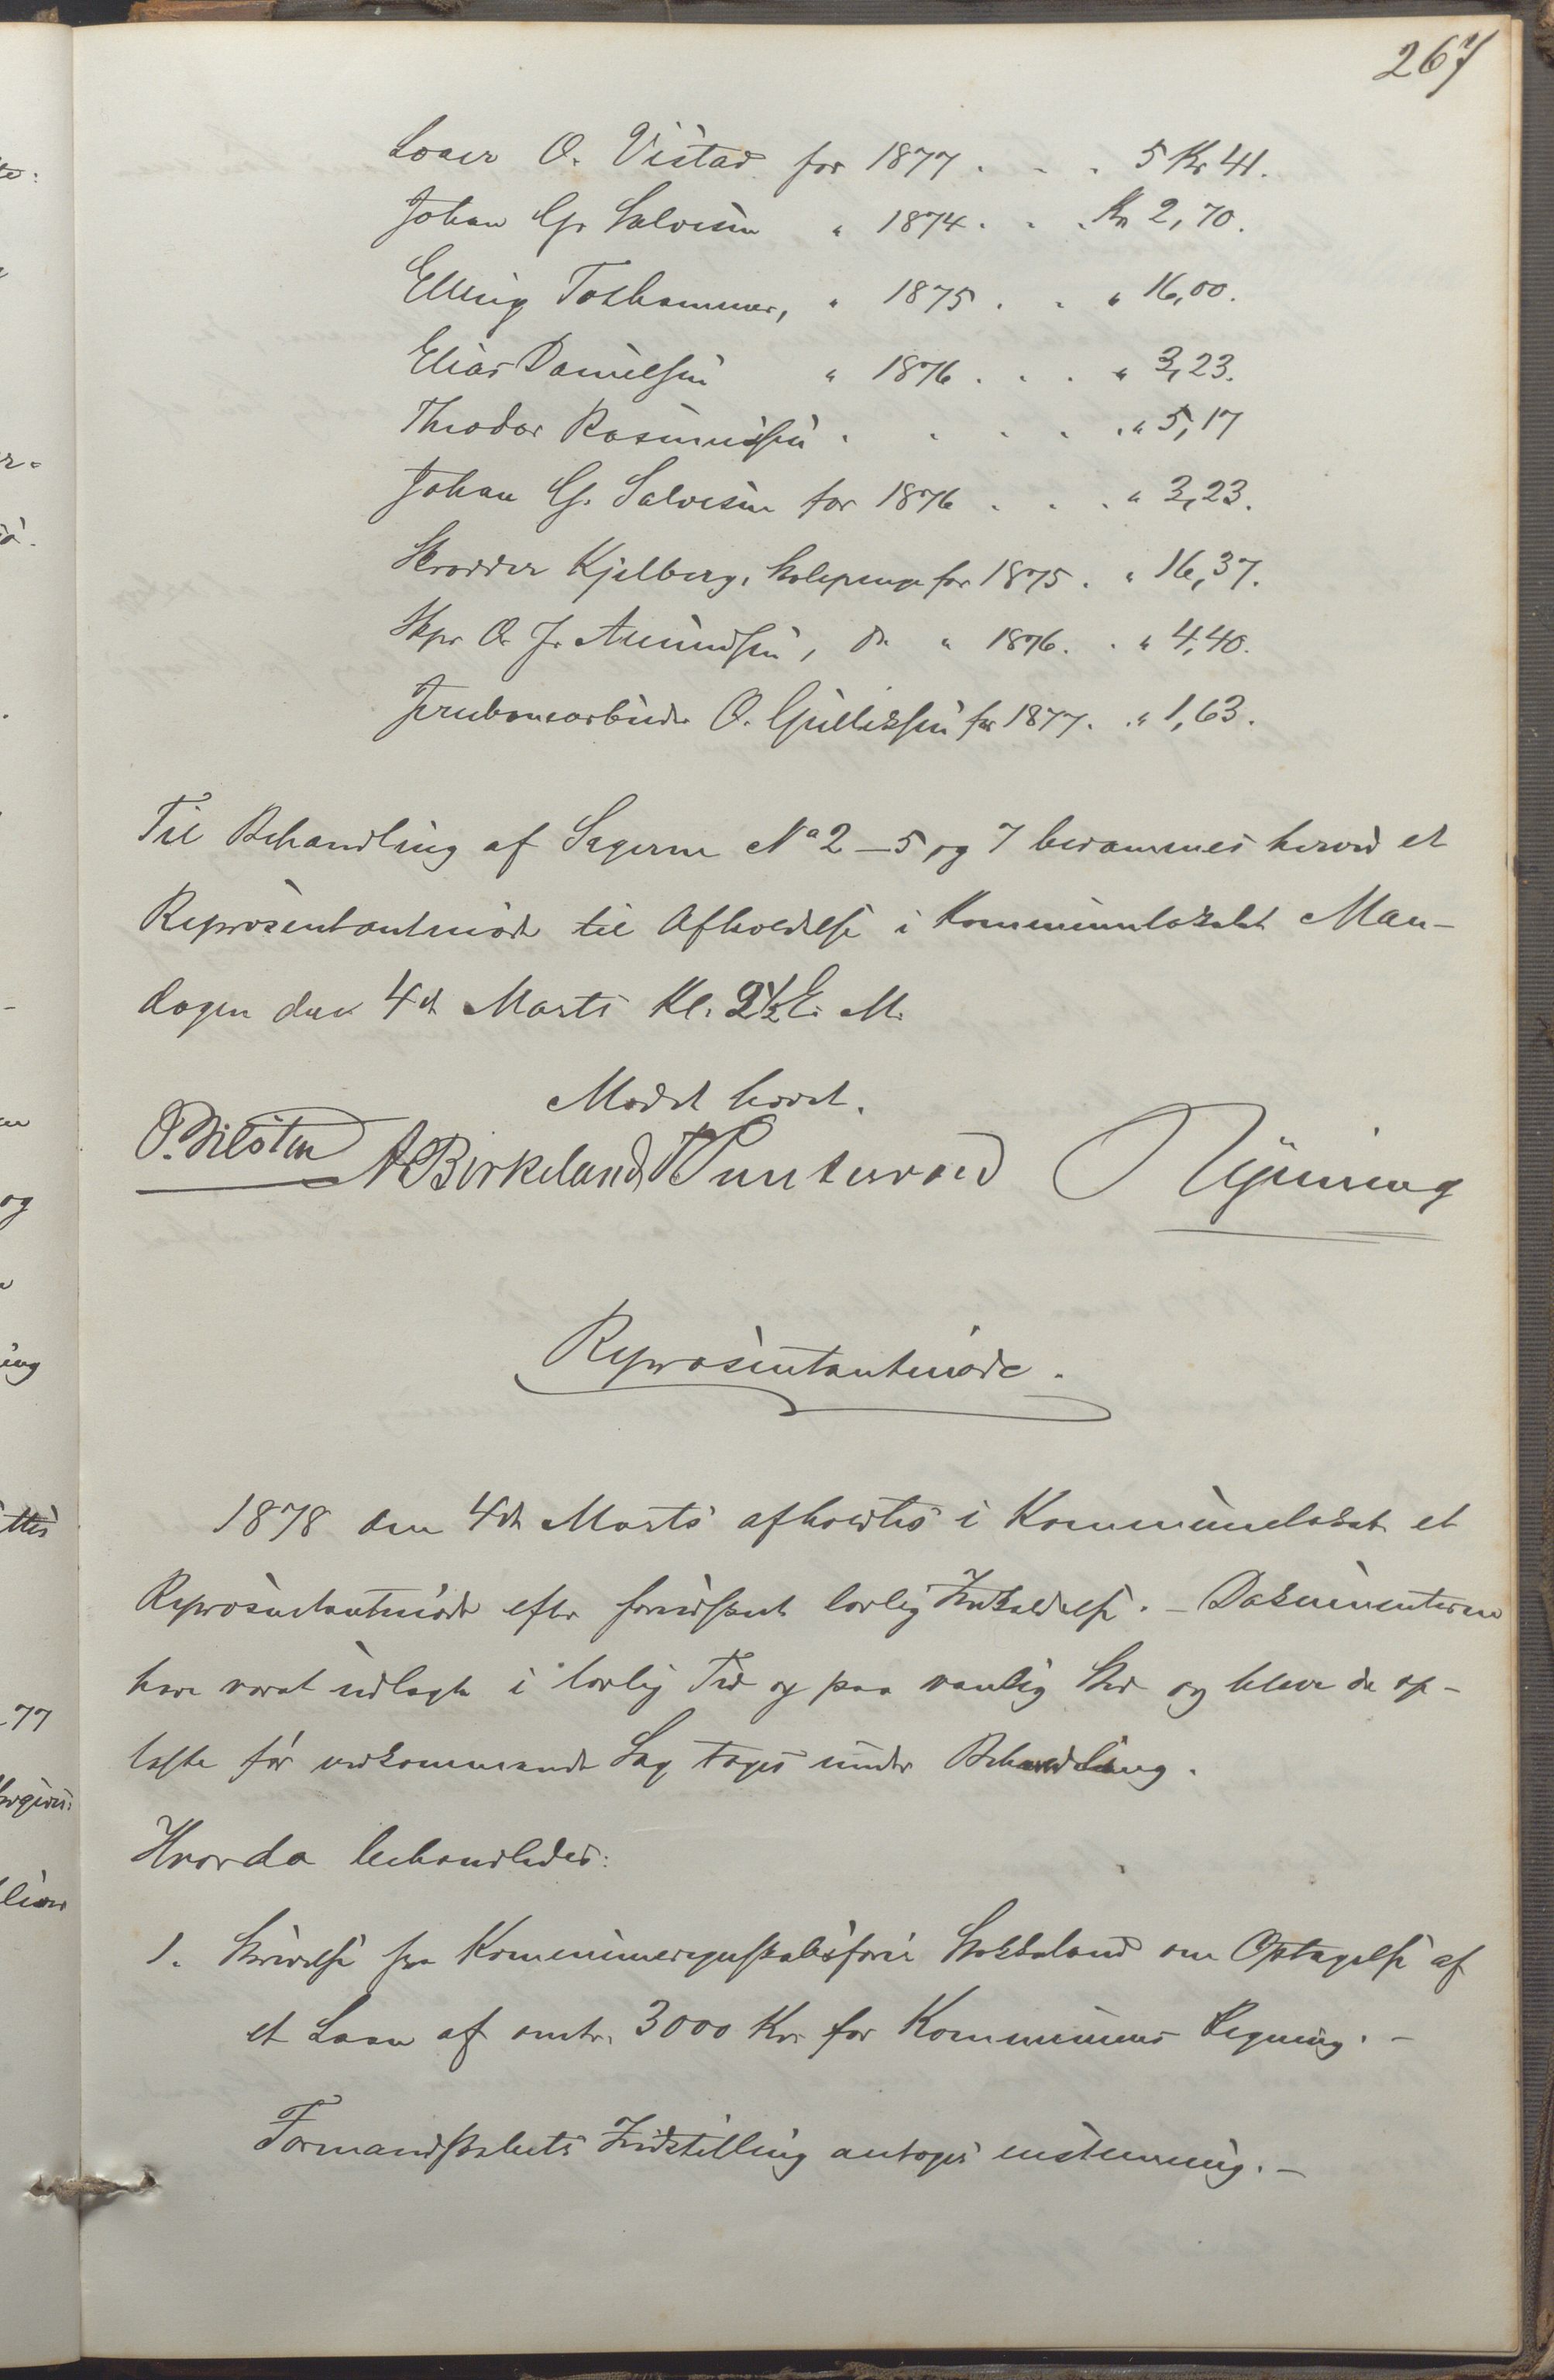 267
Losser O. Vistad for 1877 . . . 5 Kr 41.
Johan G. Salvesen " 1874 . . . Kr 2,70.
Elling Foshammer, " 1875 . . " 16,00.
Elias Danielsen " 1876 . . . " 3,23.
Theodor Rasmussen . . . . . " 5,17
Johan G. Salvesen for 1876 . . . " 3,23.
Skrædder Kjelberg, Skolepenge for 1875 . " 16,37.
Skpr O. J. Amundsen, do " 1876 . . " 4,40.
Jernbanearbeider O. Gulliksen for 1877. . " 1,63.
Til Behandling af Sagerne No 2-5 og 7 berammes herved et
Repræsentantmøde til Afholdelse i Kommunelokalet Man-
dagen den 4de Marts Kl. 2½ E. M.
Mødet hævet.
O. Vilsten A Birkeland Puntervold
Repræsentantmøde.
1878 den 4de Marts afholdtes i Kommunelokalet et
Repræsentantmøde efter forudskeet lovlig Indkaldelse. - Dokumenterne
have været udlagte i lovlig Tid og paa vanlig Sted og bleve de op-
læste før vedkommende Sag toges under Behandling.
Hvorda behandledes:
1. Skrivelse fra Kommuneregnskabsfører Stokkeland om Optagelse af
et Laan af omtr. 3000 Kr for Kommunens Regning. -
Formandskabets Indstilling antoges enstemmig. -